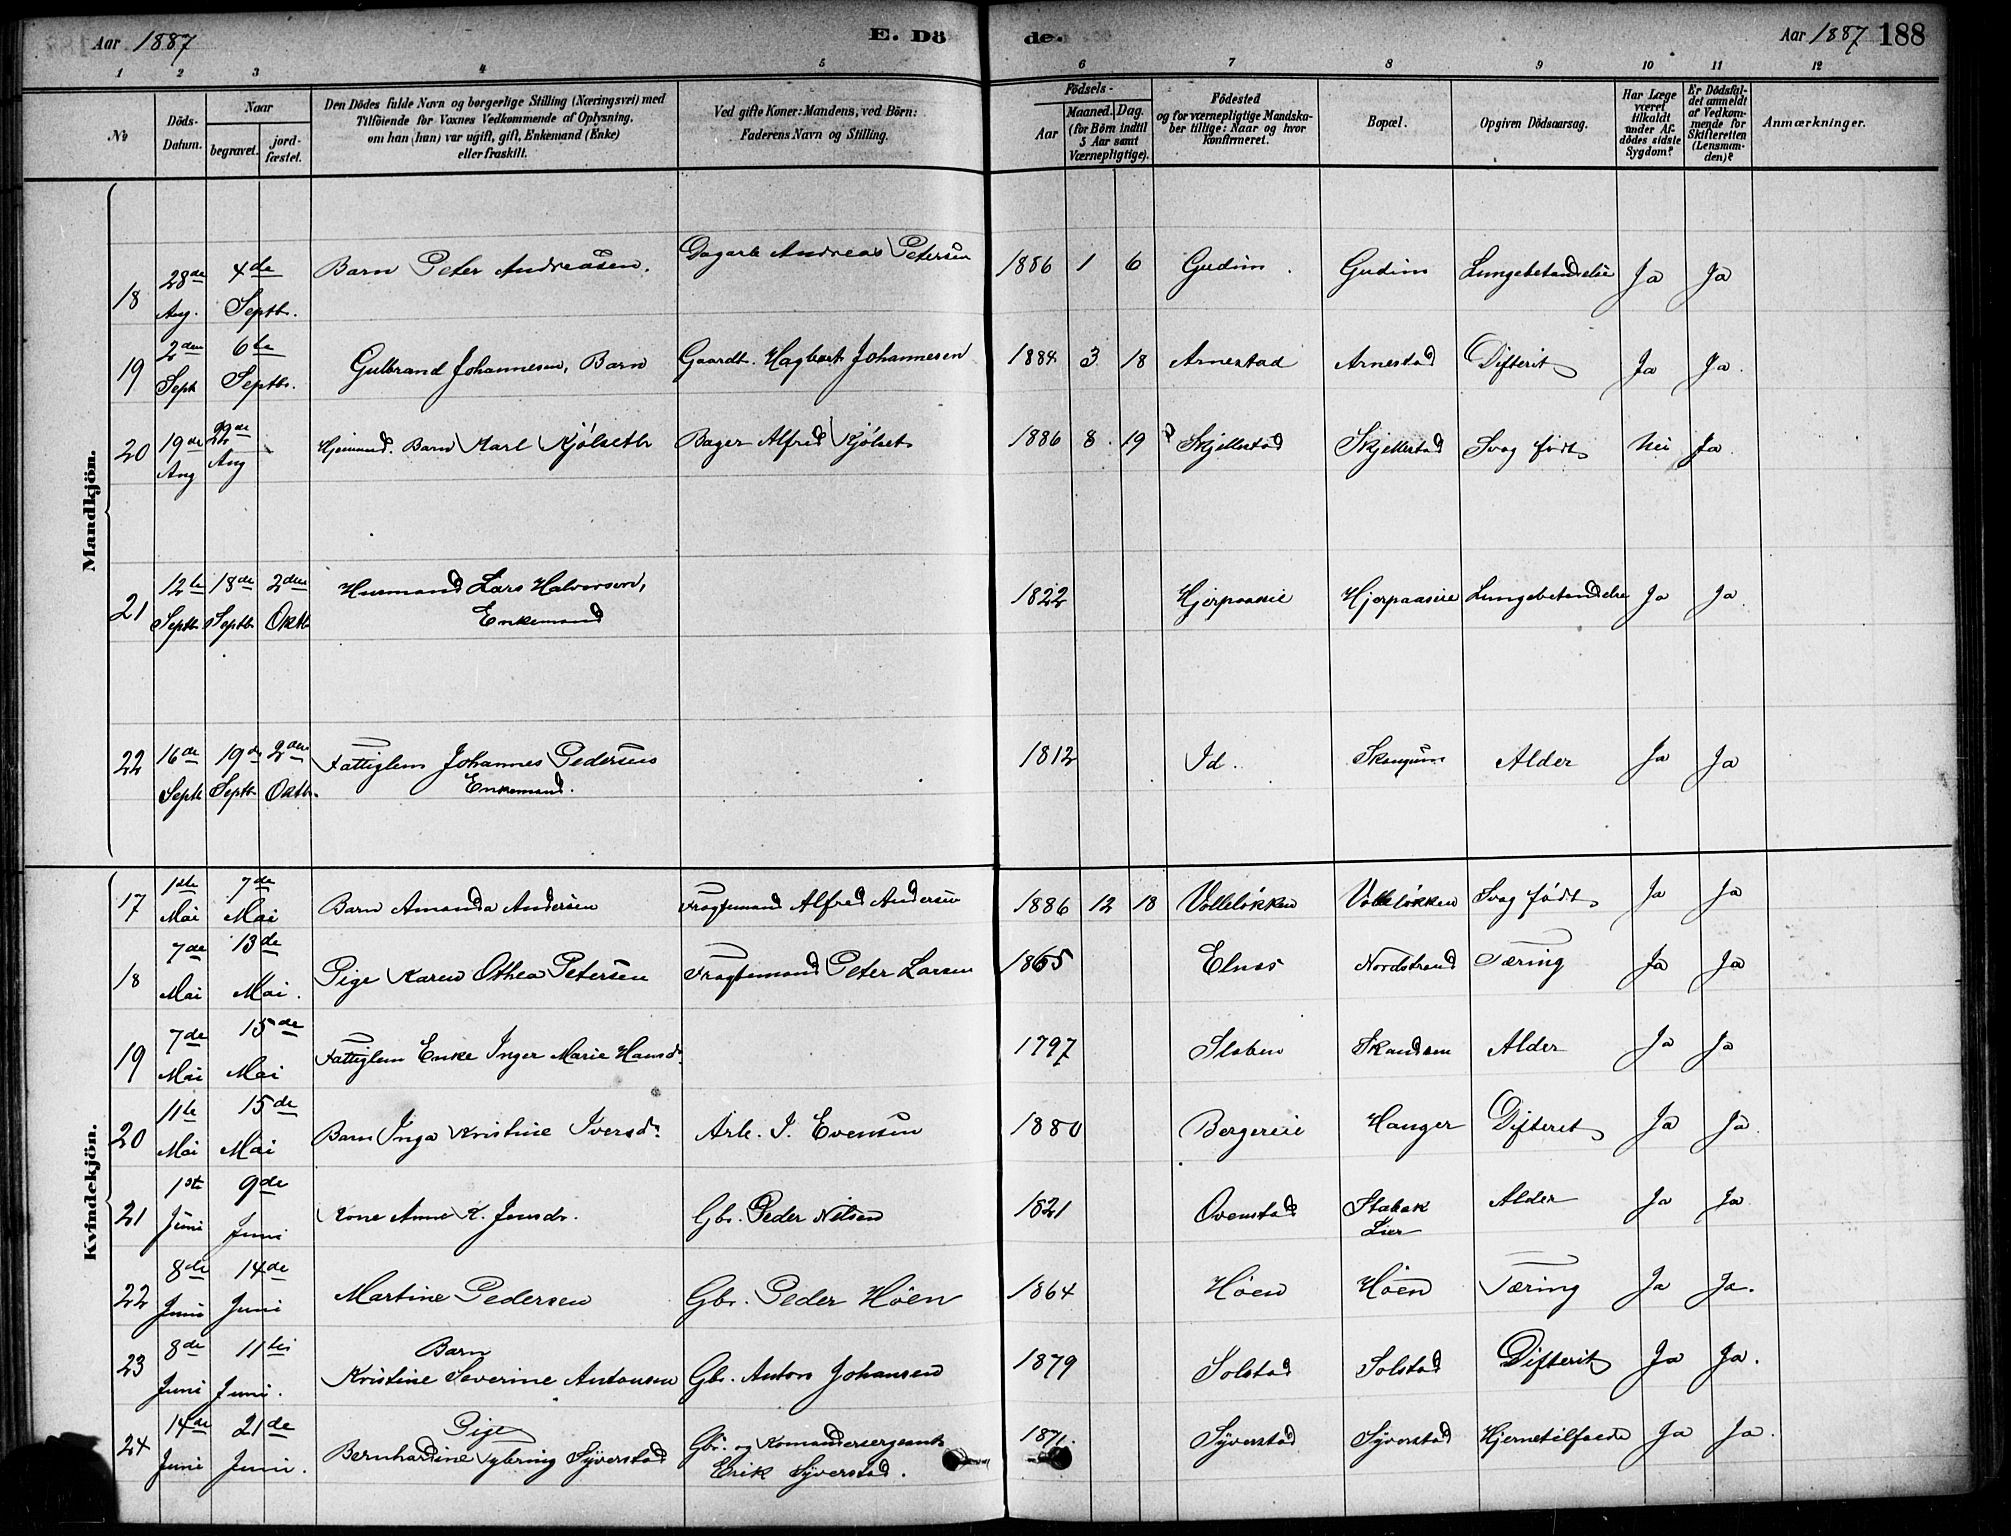 Aar 1887 E. Dö de. Aar 1887 188
1 2 3 4 5 6 7 8 9 10 11 12
No
Döds-Datum.
Naar
begravet.
jord-fæstet.
Den Dödes fulde Navn og borgerlige Stilling (Næringsvei) med
Tilföiende for Voxnes Vedkommende af Oplysning,
om han (hun) var ugift, gift, Enkemand (Enke)
eller fraskilt.
Ved gifte Koner: Mandens, ved Börn:
Faderens Navn og Stilling.
Födsels-
Aar
Maaned. Dag.
(for Börn indtil
5 Aar samt
Værnepligtige).
Födested
og for værnepligtige Mandska-
ber tillige: Naar og hvor
konfirmeret.
Bopæl.
Opgiven Dödsaarsag.
Har Læge
været
tilkaldt
under Af-
dödes sidste
Sygdom?
Er Dödsfal-
det anmeldt
af Vedkom-
mende for
Skifteretten
(Lensman-
den)?
Anmærkninger.
Mandkjön.
18 28de Aug. 4de Septb. Barn Peter Andreasen. Dagarb Andreas Petersen 1886 1 6 Gudim Gudim Lungebetændelse Ja Ja
19 2den Sept 6te Septbr. Gulbrand Johannesen, Barn Gaardt. Hagbart Johannesen 1884 3 18 Arnestad Arnestad Difterit Ja Ja.
20 19de Aug Aug Hjemmed. Barn Karl Kjølseth Bager Alfred Kjølset 1886 8 19 Skjellestad Skjellestad Svag født Nei Ja
21 12te Septb 18de Septb 2den Oktb Husmand Lars Halvorsen,
Enkemand 1822 Hjerpaaseie Hjerpaaseie Lungebetændelse Ja Ja
22 16de Septb 19de Septb 2den Oktb. Fattiglem Johannes Pedersen
Enkemand. 1812 Id. Skaugum Alder Ja Ja
Kvindekjön.
17 1ste Mai 7de Mai Barn Amanda Andersen Fragtemand Alfred Andersen 1886 12 18 Volleløkken Volleløkken Svag født Ja Ja
18 7de Mai 13de Mai. Pige Karen Othea Petersen Fragtemand Peter Larsen 1865 Elnes Nordstrand Tæring Ja Ja
19 7de Mai 15de Mai Fattiglem Enke Inger Marie Hansd. 1797 Slaben Skandsen Alder Ja Ja
20 11te Mai 15de Mai Barn Inga Kristine Iversd. Arb. I. Evensen 1880 Bergereie Hanger Difterit Ja Ja
21 1st Juni 9de Juni Kone Anne K. Jensdr. Gbr. Peder Nilsen 1821 Ovenstad Stabæk
Lier Alder Ja Ja
22 8de Juni 14de Juni Martine Pedersen Gbr. Peder Høen 1864 Høen Høen Tæring Ja Ja.
23 8de Juni 11te Juni. Barn
Kristine Severine Antonsen Gbr. Anton Johansen 1879 Solstad Solstad Difterit Ja Ja.
24 14de Juni 21de Juni. Pige
Bernhardine Syverstad Gbr. og Komandersergeant
Erik Syverstad. 1871. Syverstad Syverstad Hjernetilfælde Ja Ja.